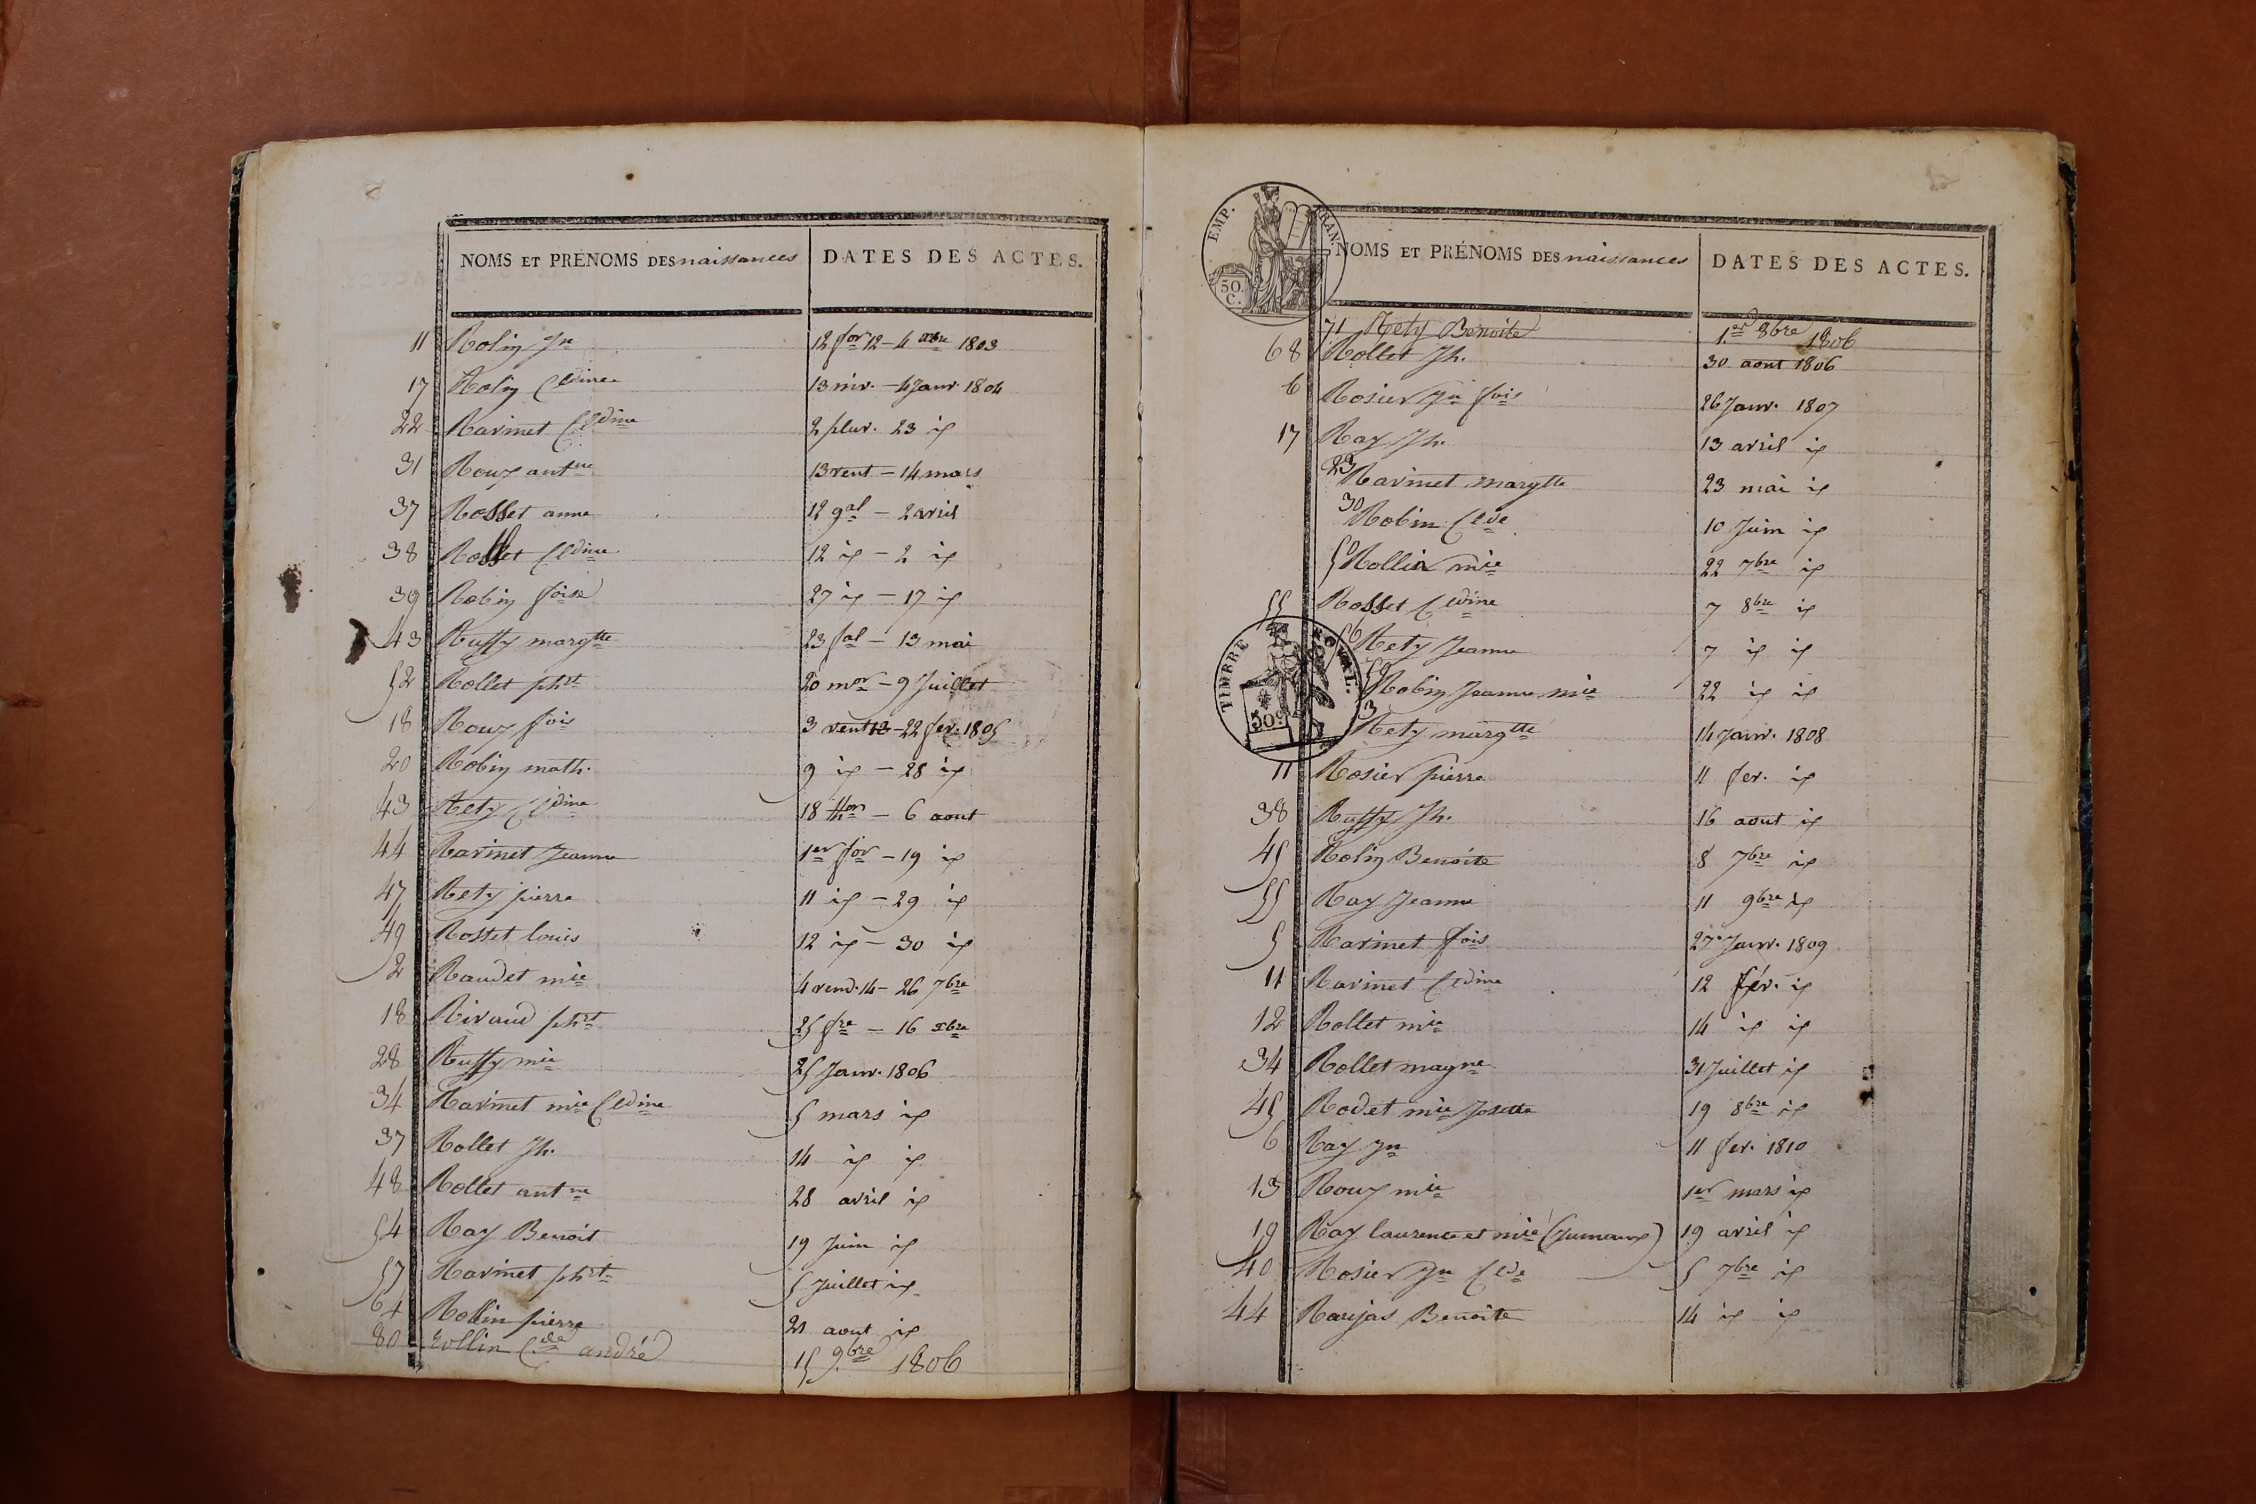 NOMS ET PRÉNOMS DES naissances DATES DES ACTES.
11 Rolin Jn 12 for 12 – 4 xbre 1803
17 Rolin Cldine 13 niv. – 4 Janv. 1804
22 Ravinet Cldine 2 pluv. 23 id
31 Roux antne 13 vent – 14 mars
37 Rosset anne 12 gal – 2 avril
38 Rollet Cldine 12 id – 2 id
39 Robin foise 27 id – 17 id
43 Ruffy margtte 23 fal – 13 mai
52 Rollet phrt 20 mor – 9 Juillet
18 Roux fois 3 vent 13 – 22 fev. 1805
20 Robin math. 9 id – 28 id
43 Rety Cldine 18 thor – 6 aout
44 Ravinet Jeanne 1er for – 19 id
47 Rety pierre 11 id – 29 id
49 Rosset louis 12 id – 30 id
2 Raudet mie 4 vend. 14 – 26 7bre
18 Rivaud phrt 25 fre – 16 xbre
28 Ruffy mie 25 Janv. 1806
34 Ravinet mie Cldine 5 mars id
37 Rollet Jh. 14 id id
48 Rollet antne 28 avril id
54 Ray Benoit 19 Juin id
57 Ravinet phrt 5 Juillet id
64 Rollin pierre 21 aout id
80 Rollin Cde andré 15 9bre 1806
EMP. FRAN.
50 C.
NOMS ET PRÉNOMS DES naissances DATES DES ACTES.
71 Rety Benoite 1er 8bre 1806
68 Rollet Jh. 30 aout 1806
6 Rosier Jn fois 26 Janv. 1807
17 Ray Jh. 13 avril id
23 Ravinet margtte 23 mai id
30 Robin Clde 10 Juin id
50 Rollin mie 22 7bre id
55 Rosset Cldine 7 8bre id
56 Rety Jeanne 7 id id
59 Robin Jeanne mie 22 id id
TIMBRE ROYAL.
50c
3 Rety margtte 14 Janv. 1808
11 Rosier pierre 11 fev. id
38 Ruffy Jh. 16 aout id
45 Rolin Benoite 8 7bre id
55 Ray Jeanne 11 9bre id
5 Ravinet fois 27 Janv. 1809
11 Ravinet Cldine 12 fév. id
12 Rollet mie 14 id id
34 Rollet magne 31 Juillet id
45 Rodet mie Josette 19 8bre id
6 Ray Jn 11 fev. 1810
13 Roux mie 1er mars id
19 Ray laurence et mie (Jumeaux) 19 avril id
40 Rosier Jn Clde 5 7bre id
44 Raujas Benoite 14 id id